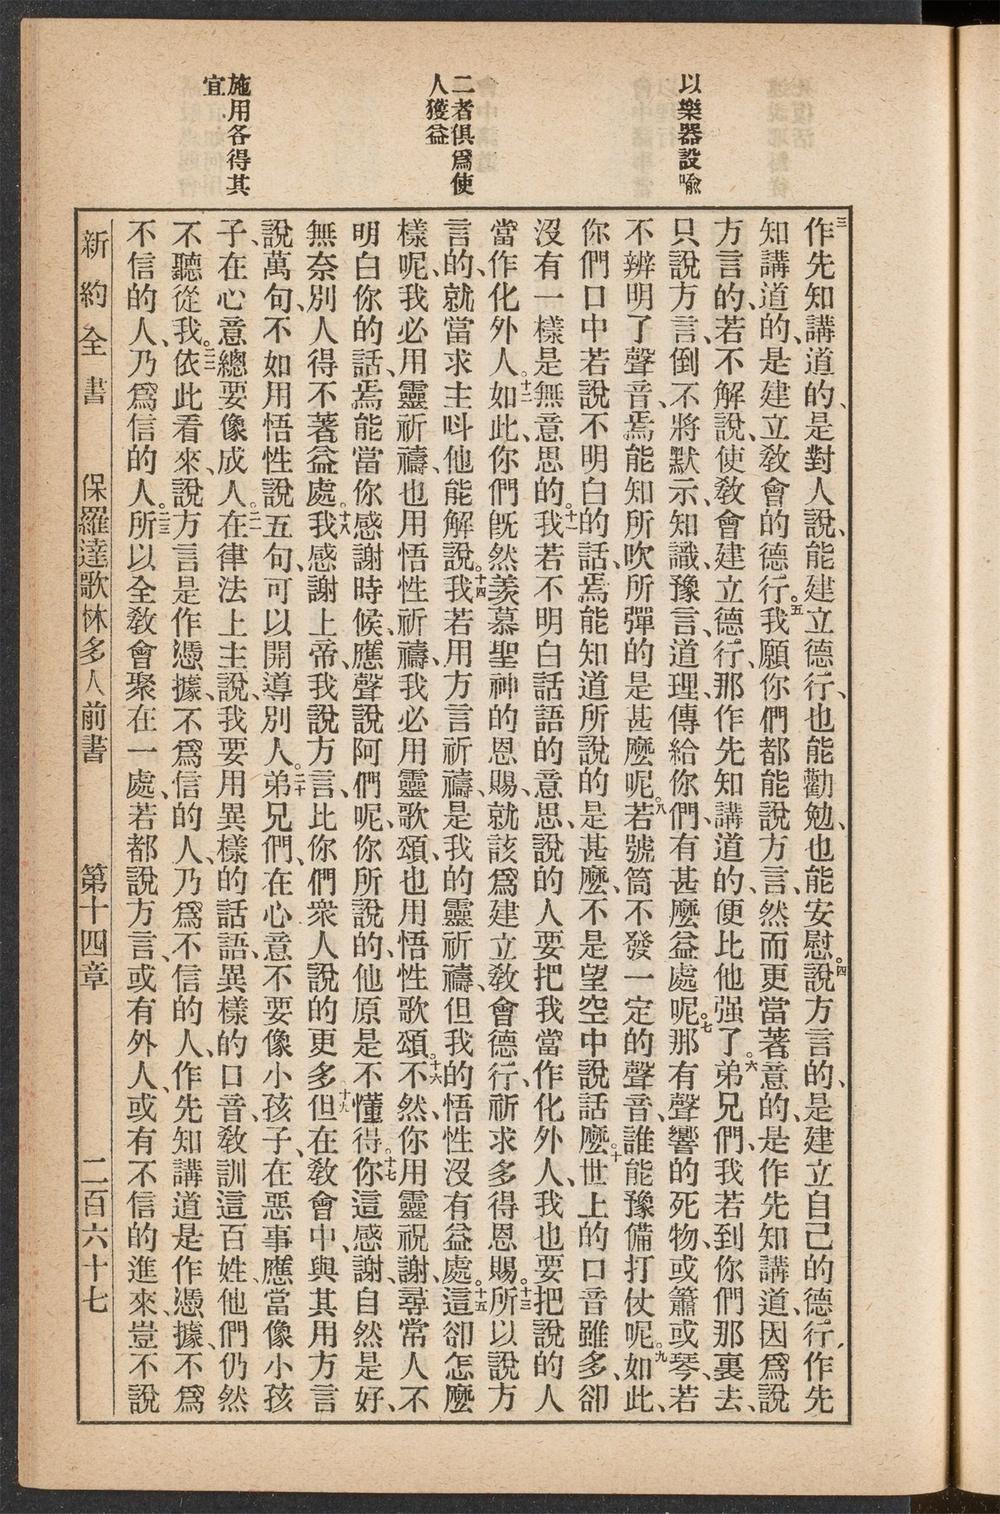 以樂器設喩
二者俱爲使
人獲益
施用各得其
宜
三作先知講道的、是對人說、能建立德行、也能勸勉、也能安慰。四說方言的、是建立自己的德行、作先
知講道的、是建立敎會的德行。五我願你們都能說方言、然而更當著意的、是作先知講道、因爲說
方言的、若不解說、使敎會建立德行、那作先知講道的、便比他强了。六弟兄們、我若到你們那裏去、
只說方言、倒不將默示、知識、豫言、道理、傳給你們、有甚麼益處呢。七那有聲響的死物、或簫或琴、若
不辨明了聲音、焉能知所吹所彈的是甚麼呢。八若號筒不發一定的聲音、誰能豫備打仗呢。九如此、
你們口中若說不明白的話、焉能知道所說的是甚麼、不是望空中說話麼。十世上的口音雖多、卻
沒有一樣是無意思的。十一我若不明白話語的意思、說的人要把我當作化外人、我也要把說的人
當作化外人。十二如此、你們旣然羨慕聖神的恩賜、就該爲建立敎會德行、祈求多得恩賜。十三所以說方
言的、就當求主呌他能解說。十四我若用方言祈禱、是我的靈祈禱、但我的悟性沒有益處。十五這卻怎麼
樣呢、我必用靈祈禱、也用悟性祈禱、我必用靈歌頌、也用悟性歌頌。十六不然、你用靈祝謝、尋常人不
明白你的話、焉能當你感謝時候、應聲說阿們呢、你所說的、他原是不懂得。十七你這感謝、自然是好、
無奈別人得不著益處。十八我感謝上帝、我說方言、比你們衆人說的更多。十九但在敎會中、與其用方言
說萬句、不如用悟性說五句、可以開導別人。二十弟兄們、在心意不要像小孩子、在惡事應當像小孩
子、在心意總要像成人。二一在律法上主說、我要用異樣的話語、異樣的口音、敎訓這百姓、他們仍然
不聽從我。二二依此看來、說方言是作憑據、不爲信的人、乃爲不信的人、作先知講道是作憑據、不爲
不信的人、乃爲信的人。二三所以全敎會聚在一處、若都說方言、或有外人、或有不信的進來、豈不說
新約全書 保羅達歌林多人前書 第十四章 二百六十七